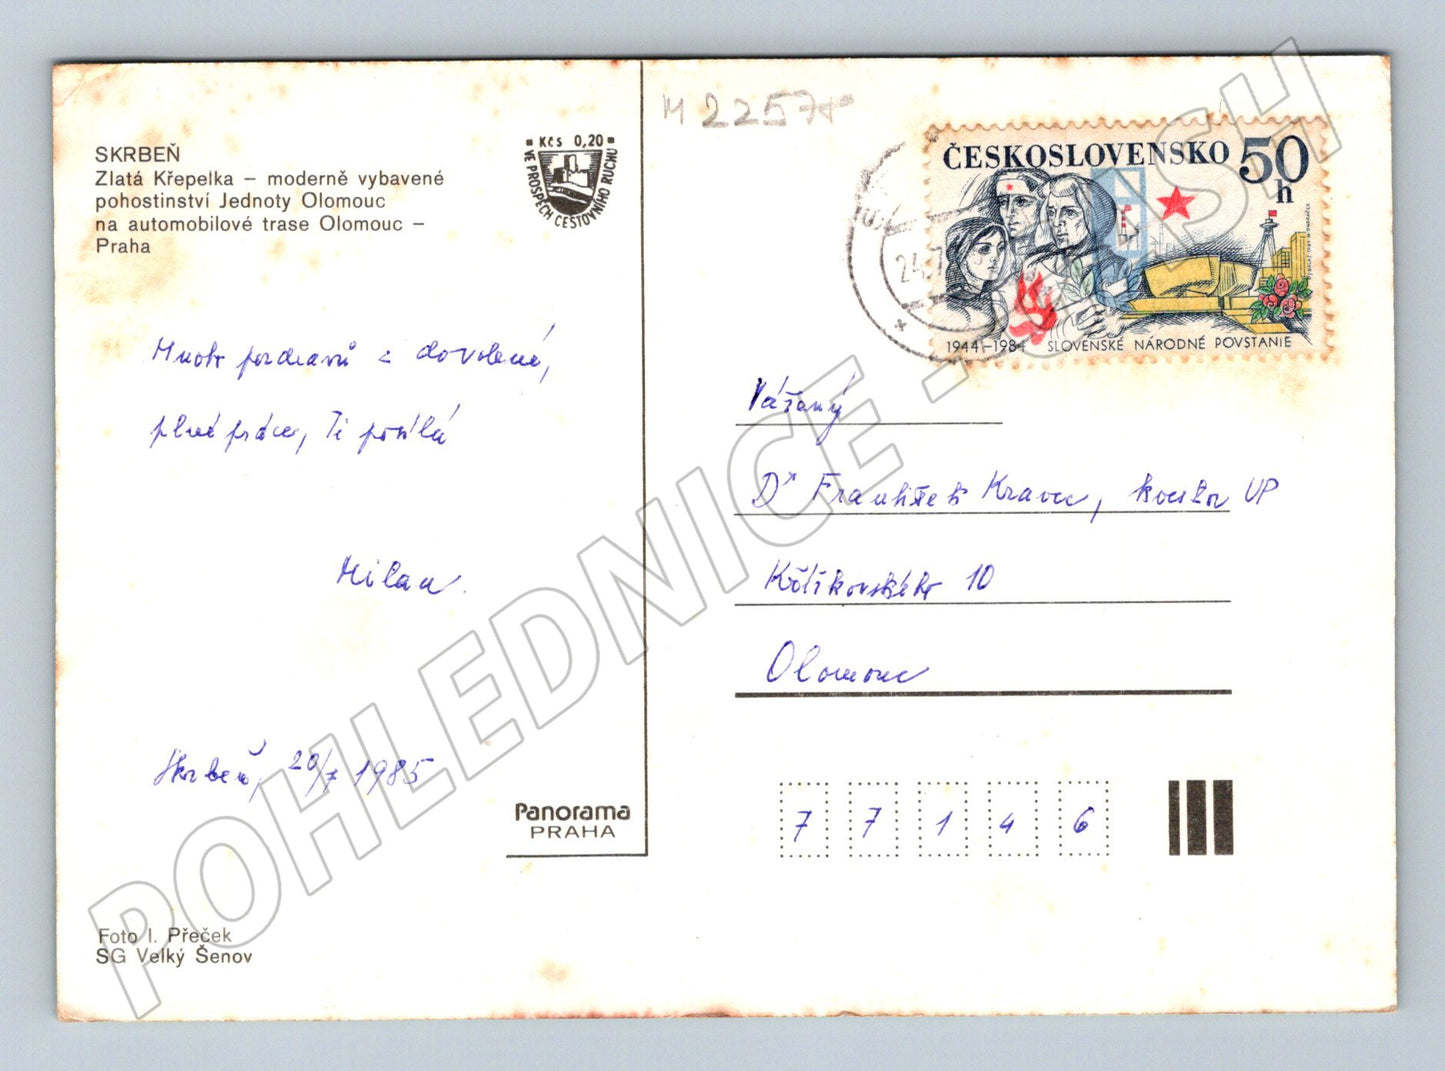 SKRBEŇ
Zlatá Křepelka – moderně vybavené
pohostinství Jednoty Olomouc
na automobilové trase Olomouc –
Praha
Kčs 0,20
VE PROSPĚCH CESTOVNÍHO RUCHU
M 2257
ČESKOSLOVENSKO 50 h
1944–1984 SLOVENSKÉ NÁRODNÉ POVSTANIE
Mnoho pozdravů z dovolené,
plné práce, Ti posílá
Milan.
Skrbeň, 20/7 1985
Vážený
Dr František Kravec, kvestor UP
Kõlikovského 10
Olomouc
7 7 1 4 6
Panorama
PRAHA
Foto I. Přeček
SG Velký Šenov
POHLEDNICE - SBÍRKY